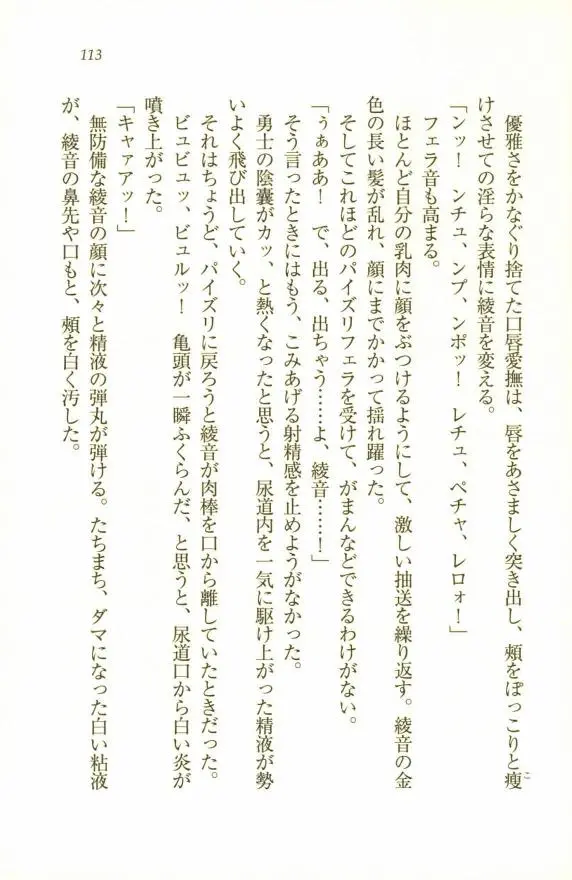 113
優雅さをかなぐり捨てた口唇愛撫は、唇をあさましく突き出し、頬をぽっこりと瘦こ
けさせての淫らな表情に綾音を変える。
「ンッ！　ンチュ、ンプ、ンポッ！　レチュ、ペチャ、レロォ！」
フェラ音も高まる。
ほとんど自分の乳肉に顔をぶつけるようにして、激しい抽送を繰り返す。綾音の金
色の長い髪が乱れ、顔にまでかかって揺れ躍った。
そしてこれほどのパイズリフェラを受けて、がまんなどできるわけがない。
「うぁああ！　で、出る、出ちゃう……よ、綾音……！」
そう言ったときにはもう、こみあげる射精感を止めようがなかった。
勇士の陰嚢がカッ、と熱くなったと思うと、尿道内を一気に駆け上がった精液が勢
いよく飛び出していく。
それはちょうど、パイズリに戻ろうと綾音が肉棒を口から離していたときだった。
ビュビュッ、ビュルッ！　亀頭が一瞬ふくらんだ、と思うと、尿道口から白い炎が
噴き上がった。
「キャァアッ！」
無防備な綾音の顔に次々と精液の弾丸が弾ける。たちまち、ダマになった白い粘液
が、綾音の鼻先や口もと、頬を白く汚した。